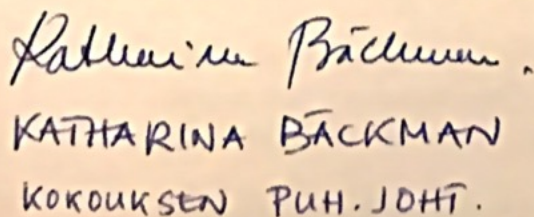 Katharina Bäckman.
KATHARINA BÄCKMAN
KOKOUKSEN PUH. JOHT.